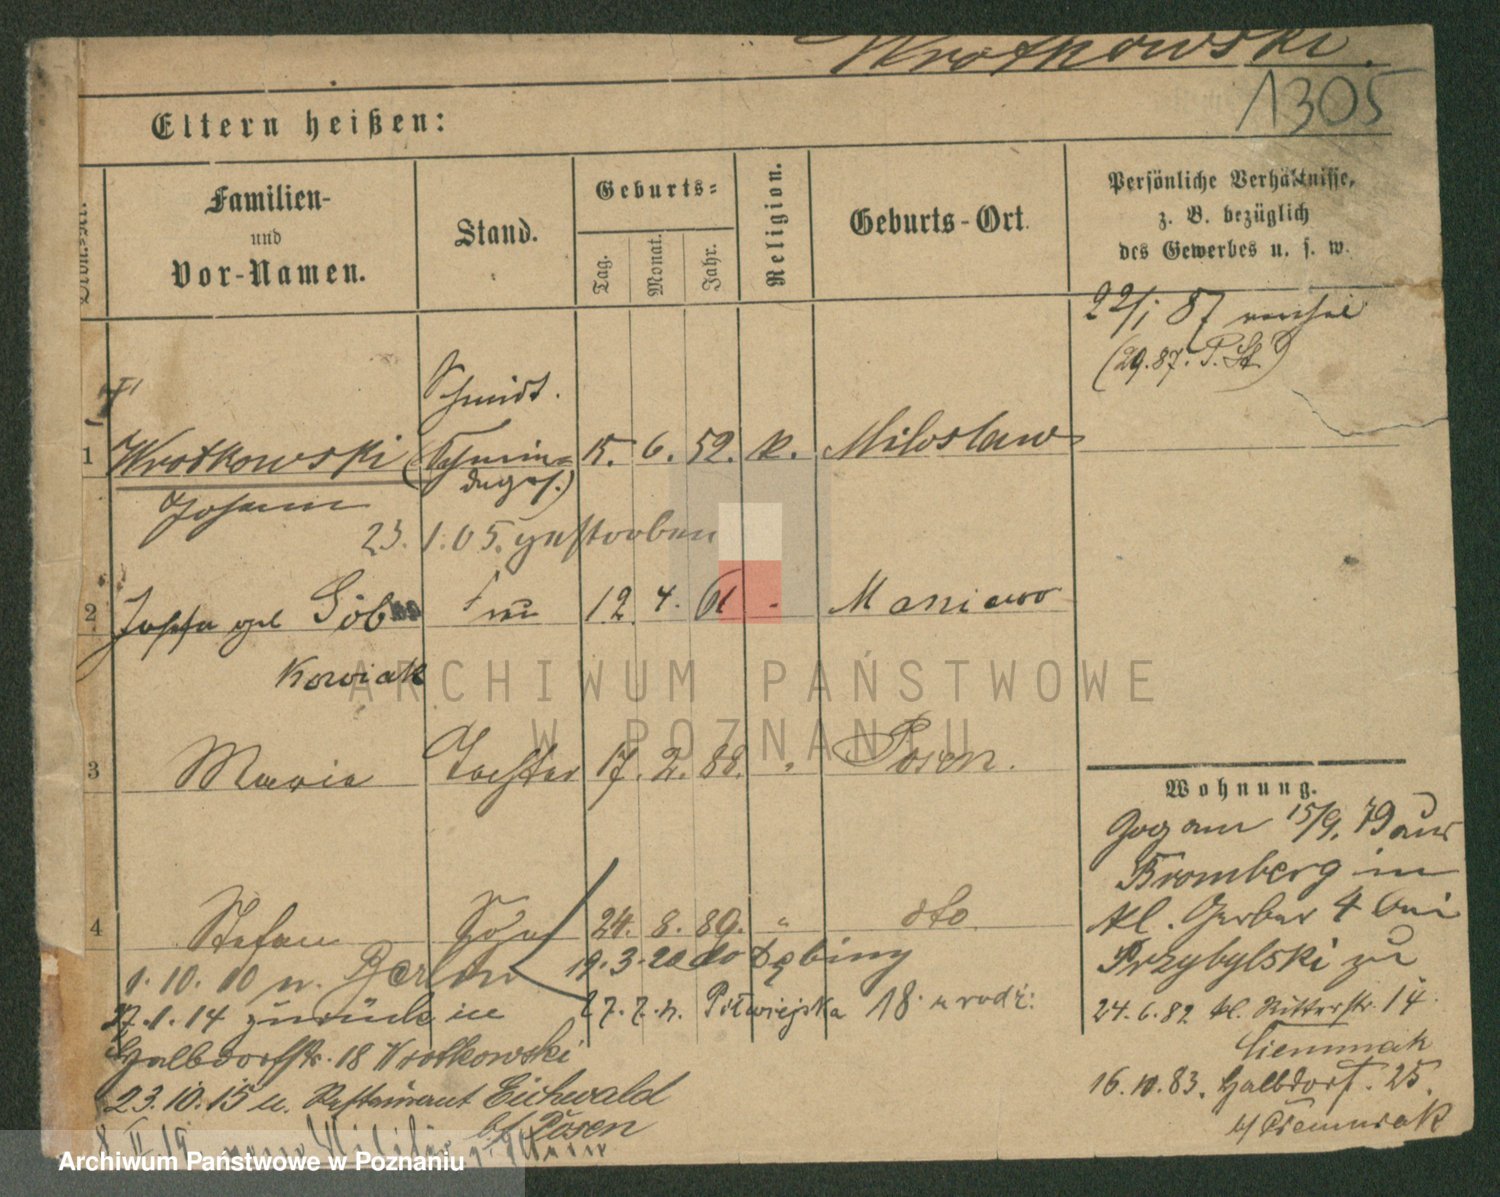 Wrotkowski.
1305
Eltern heißen:
Familien-
und
Vor-Namen.
Stand.
Geburts-
Tag.
Monat.
Jahr.
Religion.
Geburts-Ort.
Persönliche Verhältnisse,
z. B. bezüglich
des Gewerbes u. s. w.
22/1 87
Schmidt.
1 Wrotkowski 15. 6. 52. k. Miloslaw
Johann
23. 1. 05. gestorben
2 Josefa geb Göb Frau 12. 4. 61 - Maniewo
kowiak
3 Maria Tochter 17. 2. 88. " Posen.
Wohnung.
Zog am 15/9. 79 aus
Bromberg in
kl. Gerber 4 bei
Przybylski zu
4 Stefan Sohn 24. 8. 89. " dto.
1. 10. 10 n. Berlin 19. 3. 20 do Dębiny
27. 1. 14 zurück in 27. 7. n. Półwiejska 18
24. 6. 82 kl. Ritterstr. 14.
Ciemniak
Halbdorfstr. 18 Wrotkowski
16. 10. 83. Halbdorf. 25.
b/ Ciemniak
23. 10. 15 n. Restaurant Eichwald
b/ Posen
ARCHIWUM PAŃSTWOWE
W POZNANIU
Archiwum Państwowe w Poznaniu